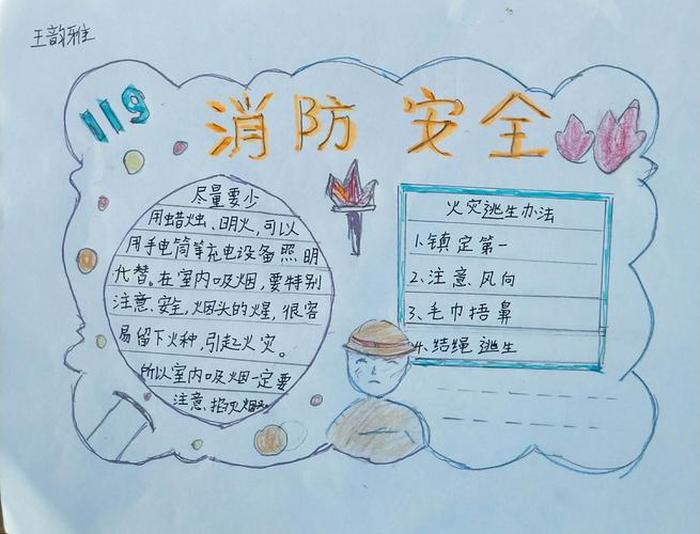 王韵雅
119
消防安全
尽量要少
用蜡烛、明火,可以
用手电筒等充电设备照明
代替。在室内吸烟,要特别
注意、安全,烟头的火星,很容
易留下火种,引起火灾。
所以室内吸烟一定要
注意、掐灭烟头
火灾逃生办法
1.镇定第一
2、注意、风向
3、毛巾捂鼻
4、结绳逃生